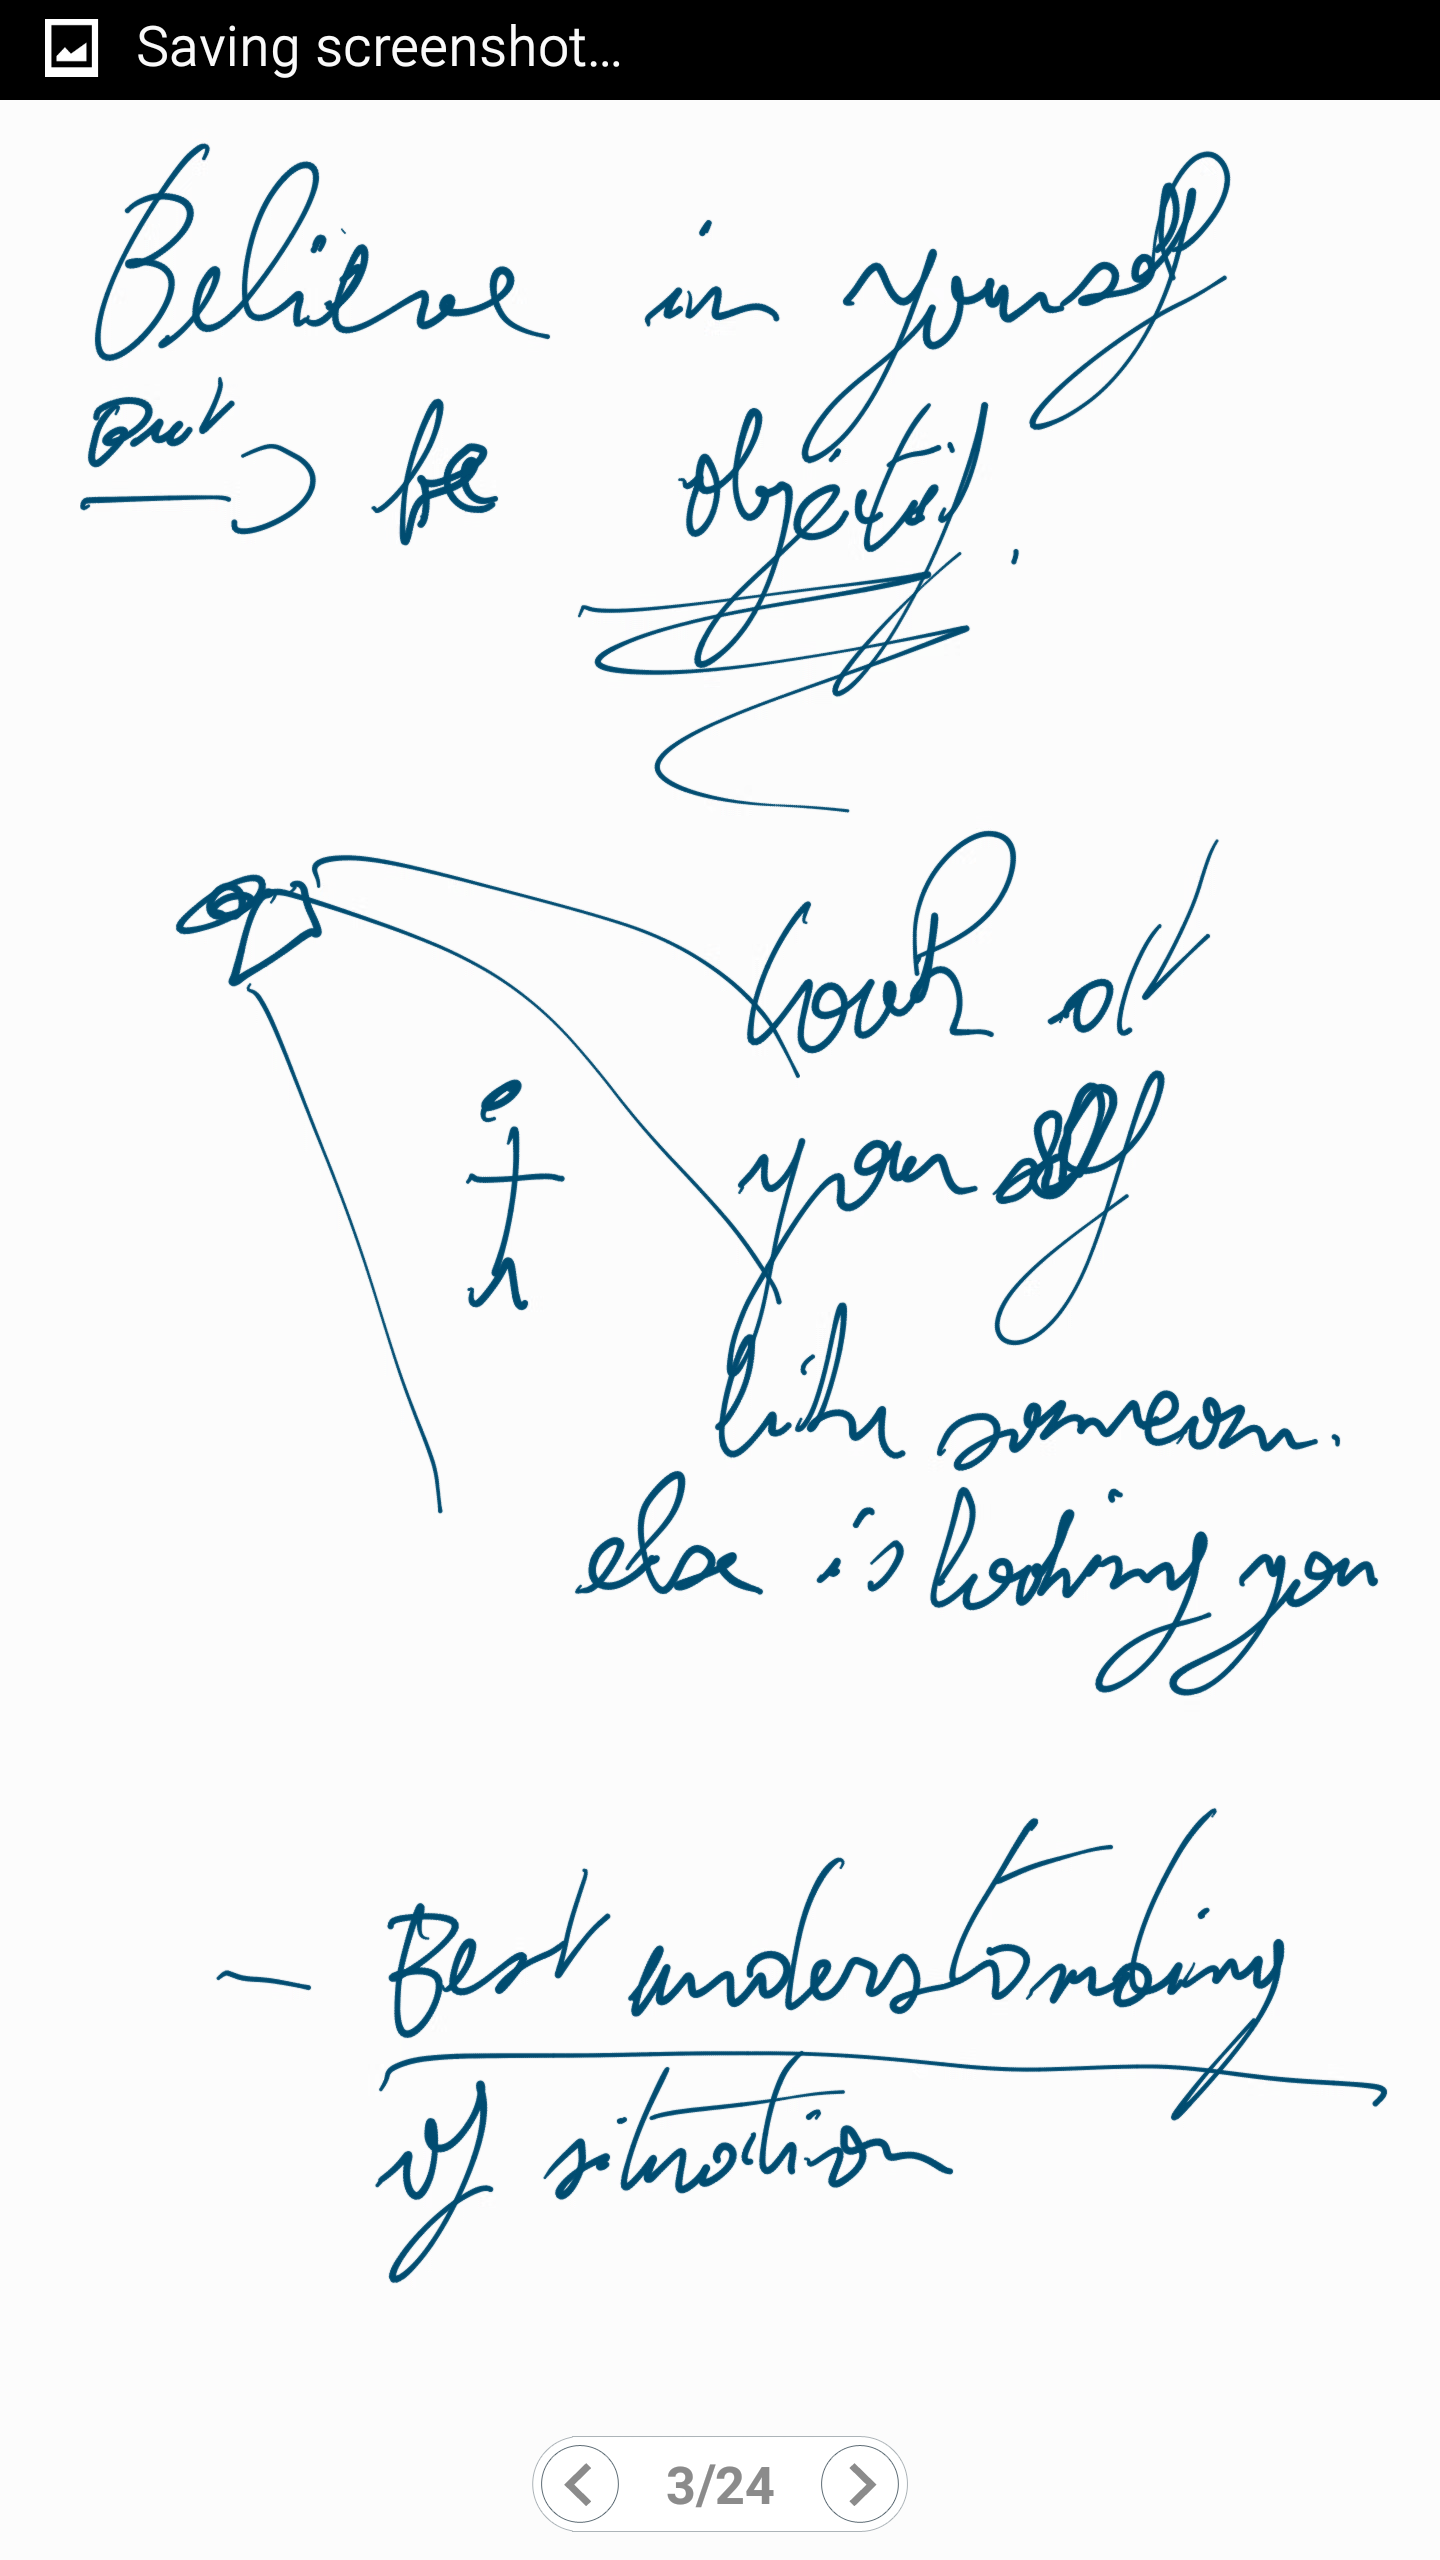 Saving screenshot...
Believe in yourself
But be objectif
Look at
yourself
like someone
else is looking you
- Best understanding
of situation
3/24